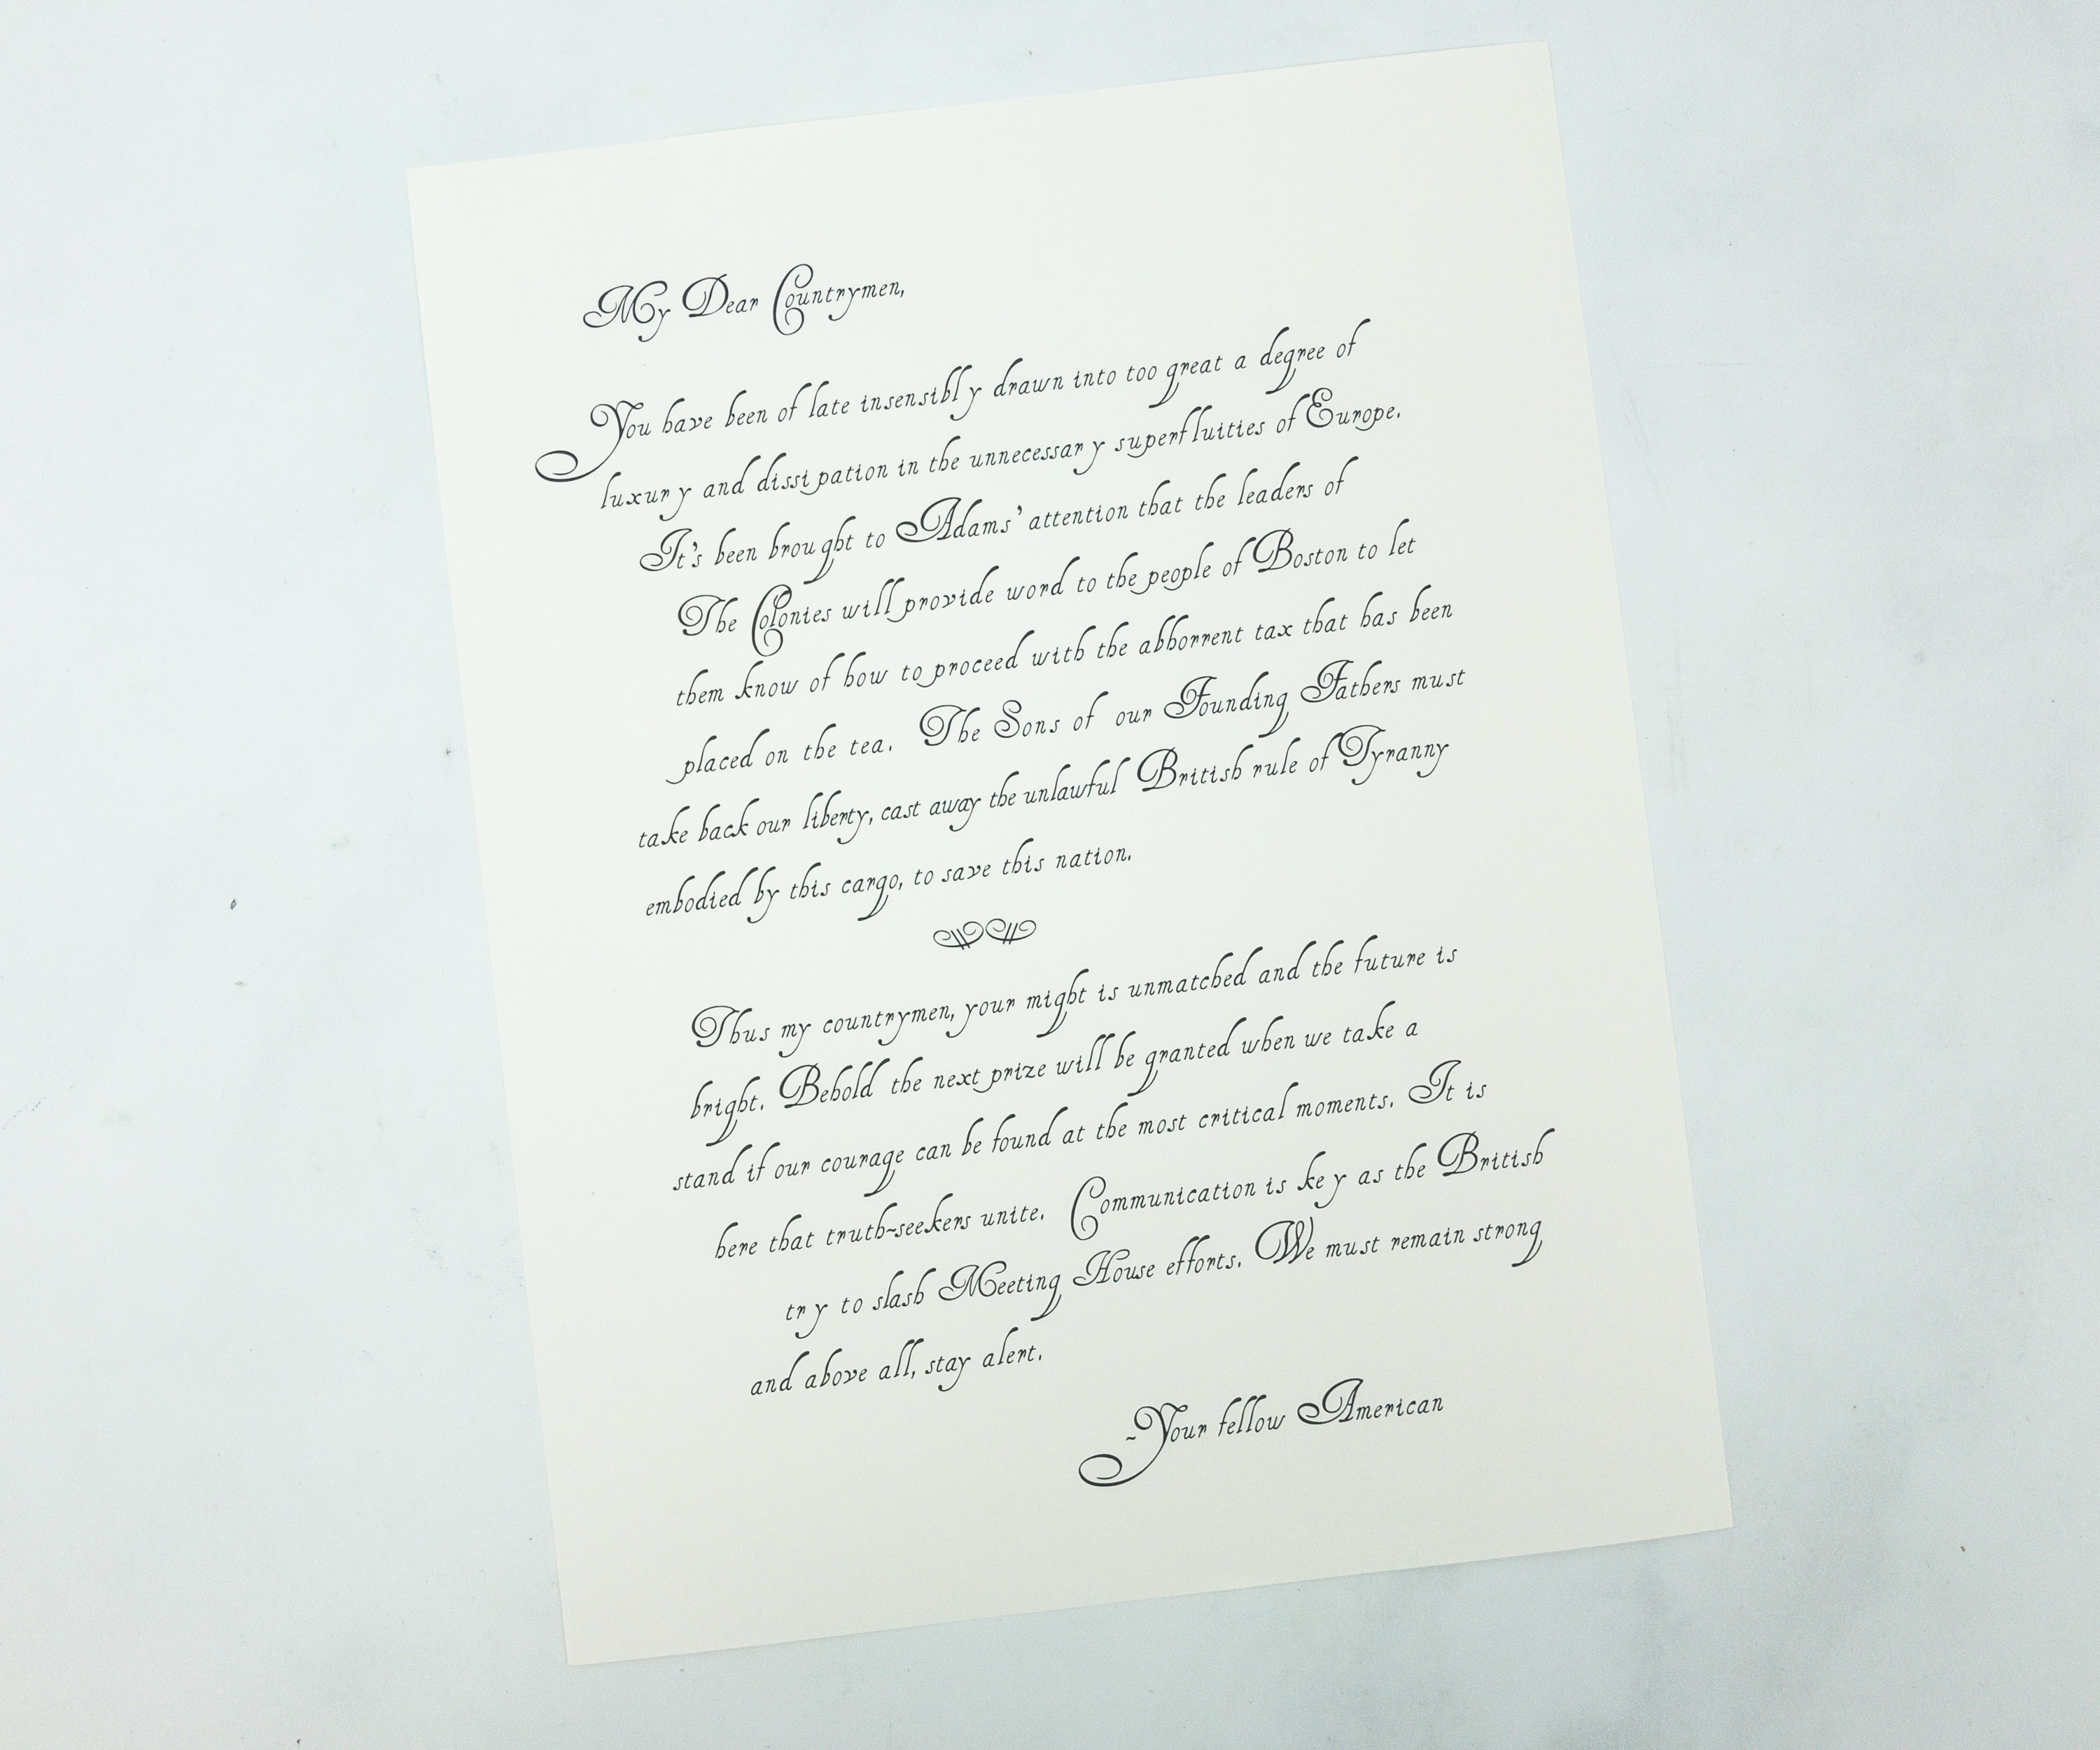 My Dear Countrymen,
You have been of late insensibly drawn into too great a degree of
luxury and dissipation in the unnecessary superfluities of Europe.
It's been brought to Adams' attention that the leaders of
The Colonies will provide word to the people of Boston to let
them know of how to proceed with the abhorrent tax that has been
placed on the tea. The Sons of our Founding Fathers must
take back our liberty, cast away the unlawful British rule of Tyranny
embodied by this cargo, to save this nation.
Thus my countrymen, your might is unmatched and the future is
bright. Behold the next prize will be granted when we take a
stand if our courage can be found at the most critical moments. It is
here that truth-seekers unite. Communication is key as the British
try to slash Meeting House efforts. We must remain strong
and above all, stay alert.
~Your fellow American